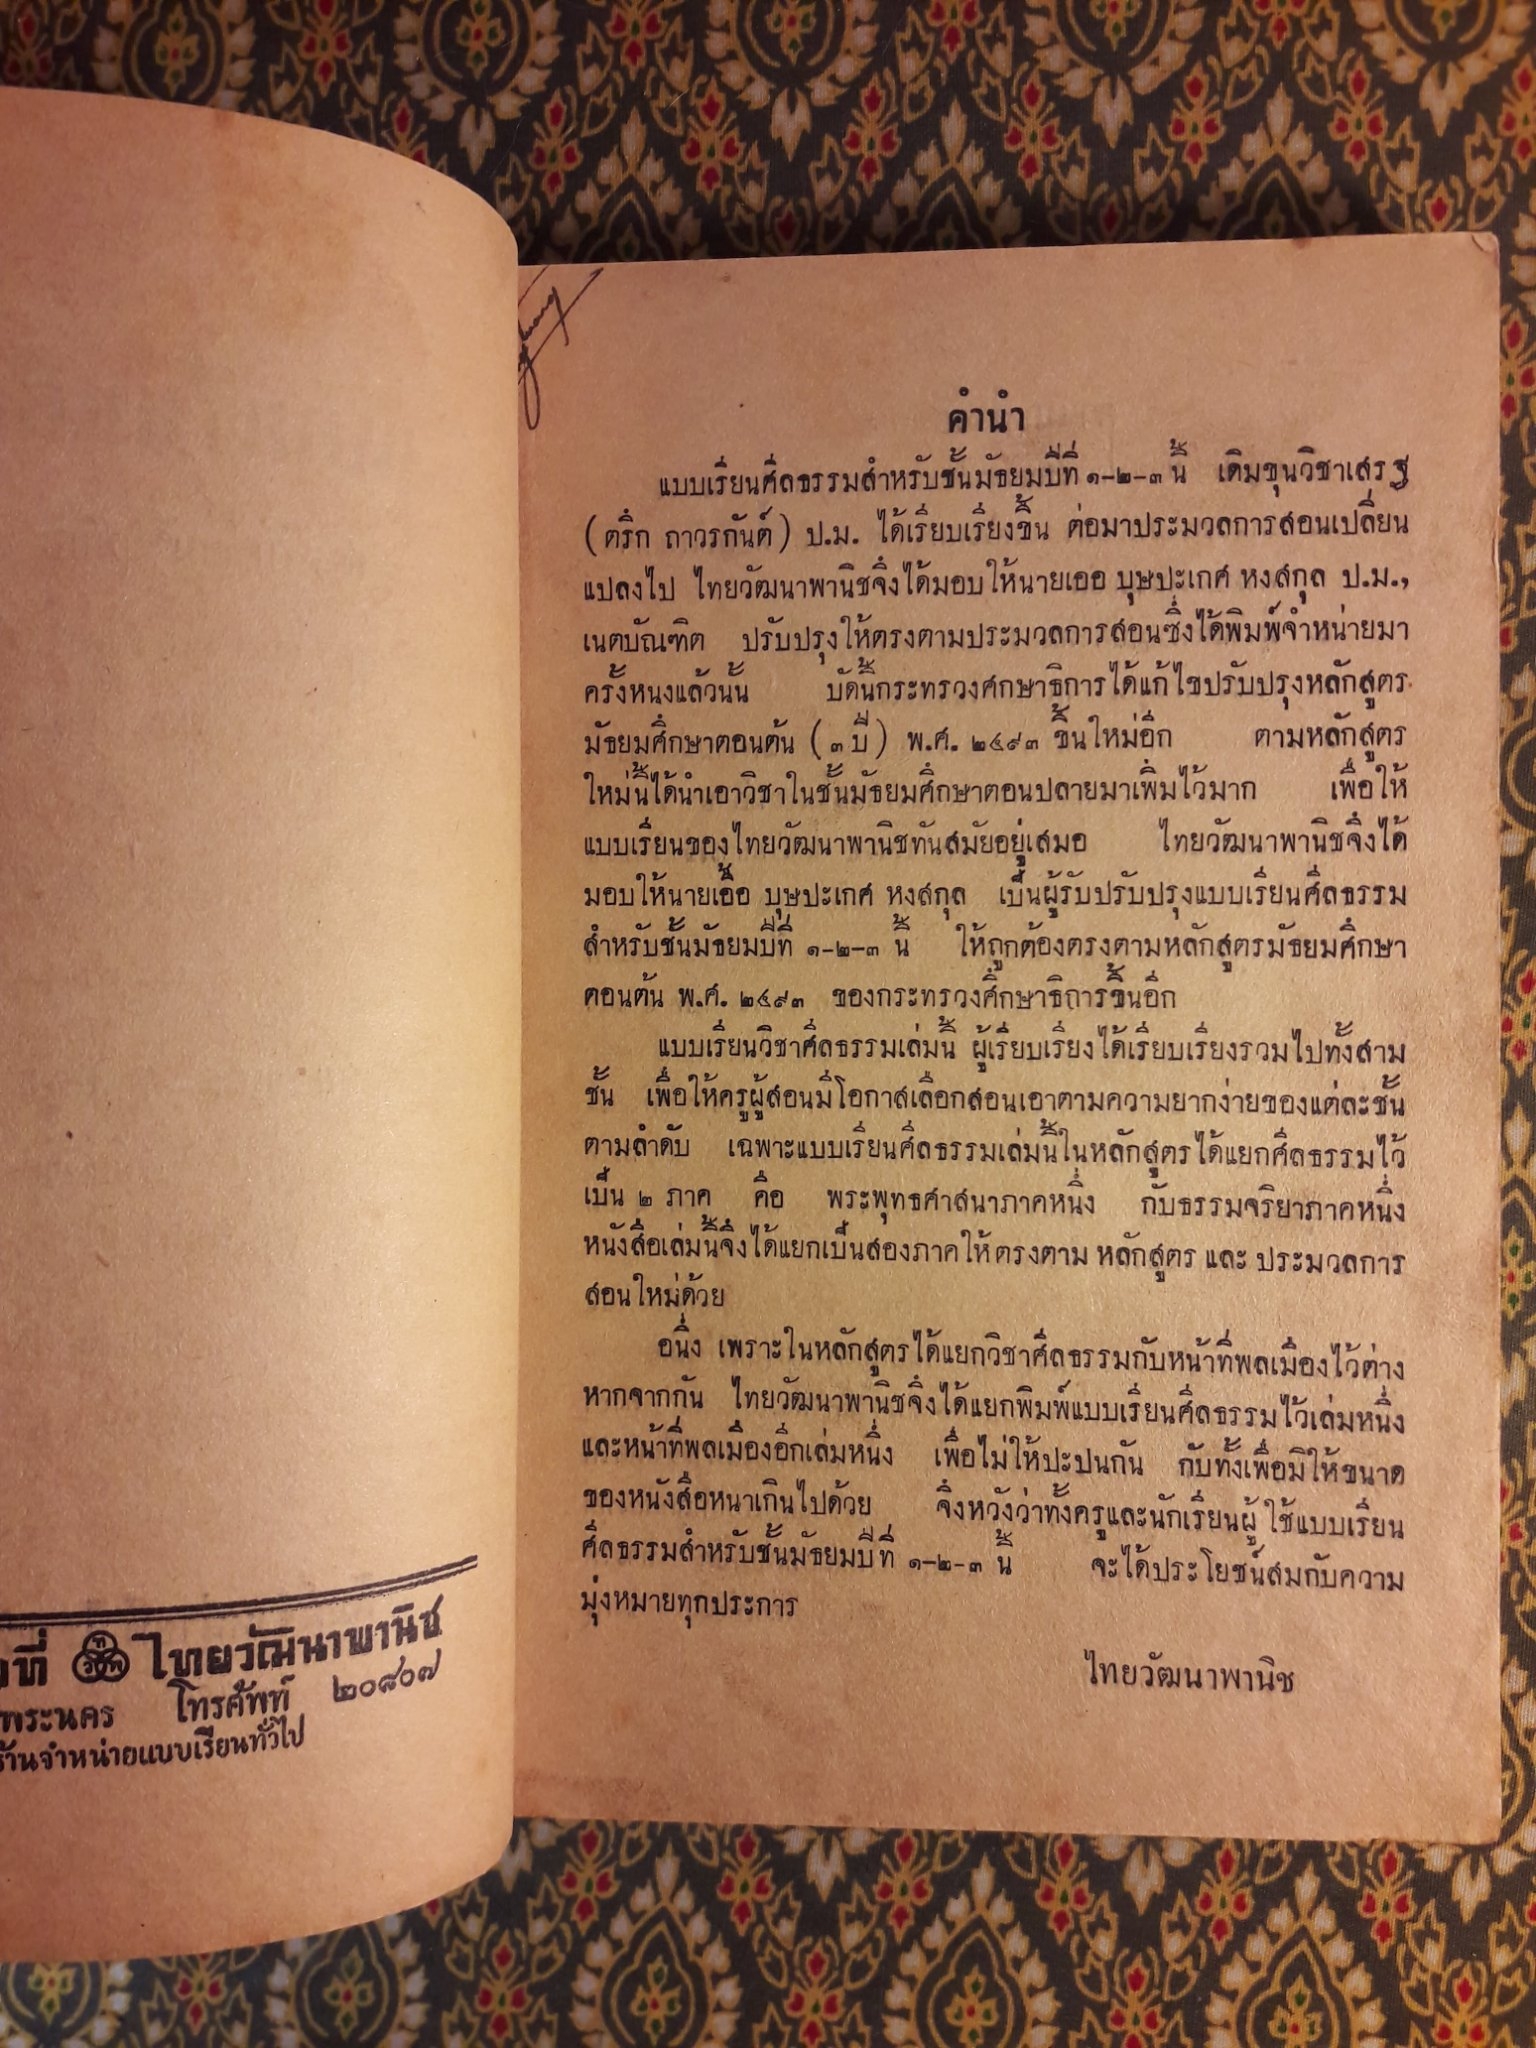 ที่ ไทยวัฒนาพานิช
พระนคร โทรศัพท์ ๒๐๘๐๗
ร้านจำหน่ายแบบเรียนทั่วไป
คำนำ
แบบเรียนศีลธรรมสำหรับชั้นมัธยมปีที่ ๑-๒-๓ นี้ เดิมขุนวิชาเสรฐ
(ตริ๊ก ถาวรกันต์) ป.ม. ได้เรียบเรียงขึ้น ต่อมาประมวลการสอนเปลี่ยน
แปลงไป ไทยวัฒนาพานิชจึงได้มอบให้นายเออ บุษปะเกศ หงสกุล ป.ม.,
เนตบัณฑิต ปรับปรุงให้ตรงตามประมวลการสอนซึ่งได้พิมพ์จำหน่ายมา
ครั้งหนงแล้วนั้น บัดนี้กระทรวงศกษาธิการได้แก้ไขปรับปรุงหลักสูตร
มัธยมศึกษาตอนต้น (๓ ปี) พ.ศ. ๒๔๙๓ ขึ้นใหม่อีก ตามหลักสูตร
ใหม่นี้ได้นำเอาวิชาในชั้นมัธยมศึกษาตอนปลายมาเพิ่มไว้มาก เพื่อให้
แบบเรียนของไทยวัฒนาพานิชทันสมัยอยู่เสมอ ไทยวัฒนาพานิชจึงได้
มอบให้นายเอื้อ บุษปะเกศ หงสกุล เป็นผู้รับปรับปรุงแบบเรียนศีลธรรม
สำหรับชั้นมัธยมปีที่ ๑-๒-๓ นี้ ให้ถูกต้องตรงตามหลักสูตรมัธยมศึกษา
ตอนต้น พ.ศ. ๒๔๙๓ ของกระทรวงศึกษาธิการขึ้นอีก
แบบเรียนวิชาศีลธรรมเล่มนี้ ผู้เรียบเรียงได้เรียบเรียงรวมไปทั้งสาม
ชั้น เพื่อให้ครูผู้สอนมีโอกาสเลือกสอนเอาตามความยากง่ายของแต่ละชั้น
ตามลำดับ เฉพาะแบบเรียนศีลธรรมเล่มนี้ในหลักสูตรได้แยกศีลธรรมไว้
เป็น ๒ ภาค คือ พระพุทธศาสนาภาคหนึ่ง กับธรรมจริยาภาคหนึ่ง
หนังสือเล่มนี้จึงได้แยกเป็นสองภาคให้ตรงตาม หลักสูตร และ ประมวลการ
สอนใหม่ด้วย
อนึ่ง เพราะในหลักสูตรได้แยกวิชาศีลธรรมกับหน้าที่พลเมืองไว้ต่าง
หากจากกัน ไทยวัฒนาพานิชจึงได้แยกพิมพ์แบบเรียนศีลธรรมไว้เล่มหนึ่ง
และหน้าที่พลเมืองอีกเล่มหนึ่ง เพื่อไม่ให้ปะปนกัน กับทั้งเพื่อมิให้ขนาด
ของหนังสือหนาเกินไปด้วย จึงหวังว่าทั้งครูและนักเรียนผู้ ใช้แบบเรียน
ศีลธรรมสำหรับชั้นมัธยมปีที่ ๑-๒-๓ นี้ จะได้ประโยชน์สมกับความ
มุ่งหมายทุกประการ
ไทยวัฒนาพานิช